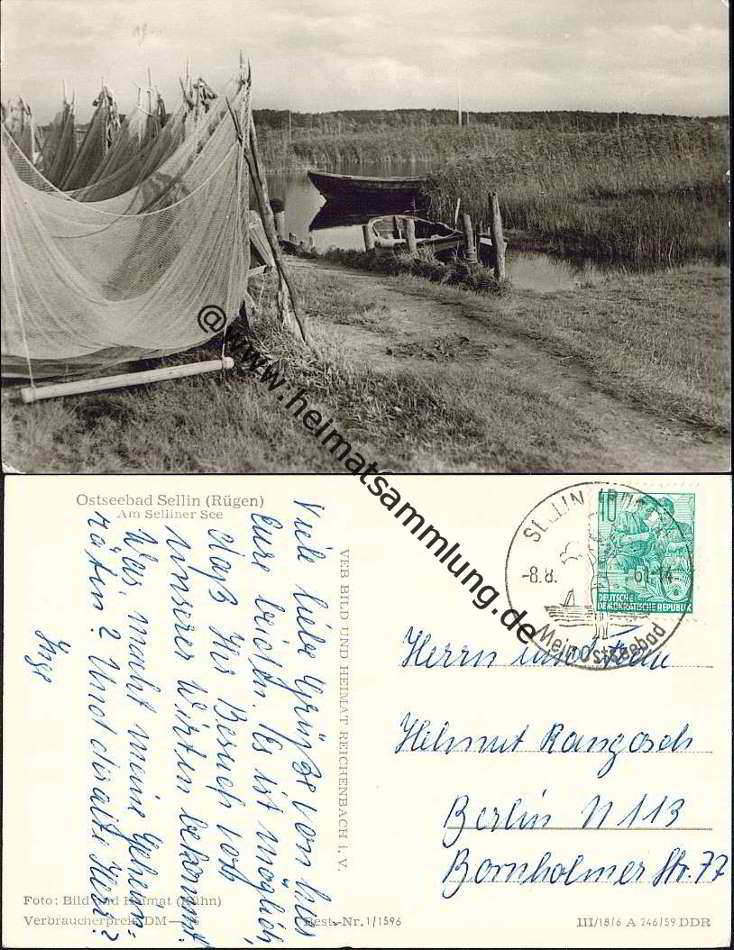 @www.heimatsammlung.de
Ostseebad Sellin (Rügen)
Am Selliner See
Viele liebe Grüße von
Eure beiden. Es ist möglich,
daß Ihr Besuch von
unserer Wirtin bekommt.
Was macht meine Geheim-
räten? Und die alte Herz?
Inge
VEB BILD UND HEIMAT REICHENBACH i. V.
SELLIN
-8.8. 61-14
Mein Ostseebad
10
DEUTSCHE
DEMOKRATISCHE REPUBLIK
Herrn und
Helmut Rangosch
Berlin N 113
Bornholmer Str. 77
Foto: Bild und Heimat (Kühn)
Verbraucherpreis DM
Best.-Nr. 1/1596
III/18/6 A 246/59 DDR